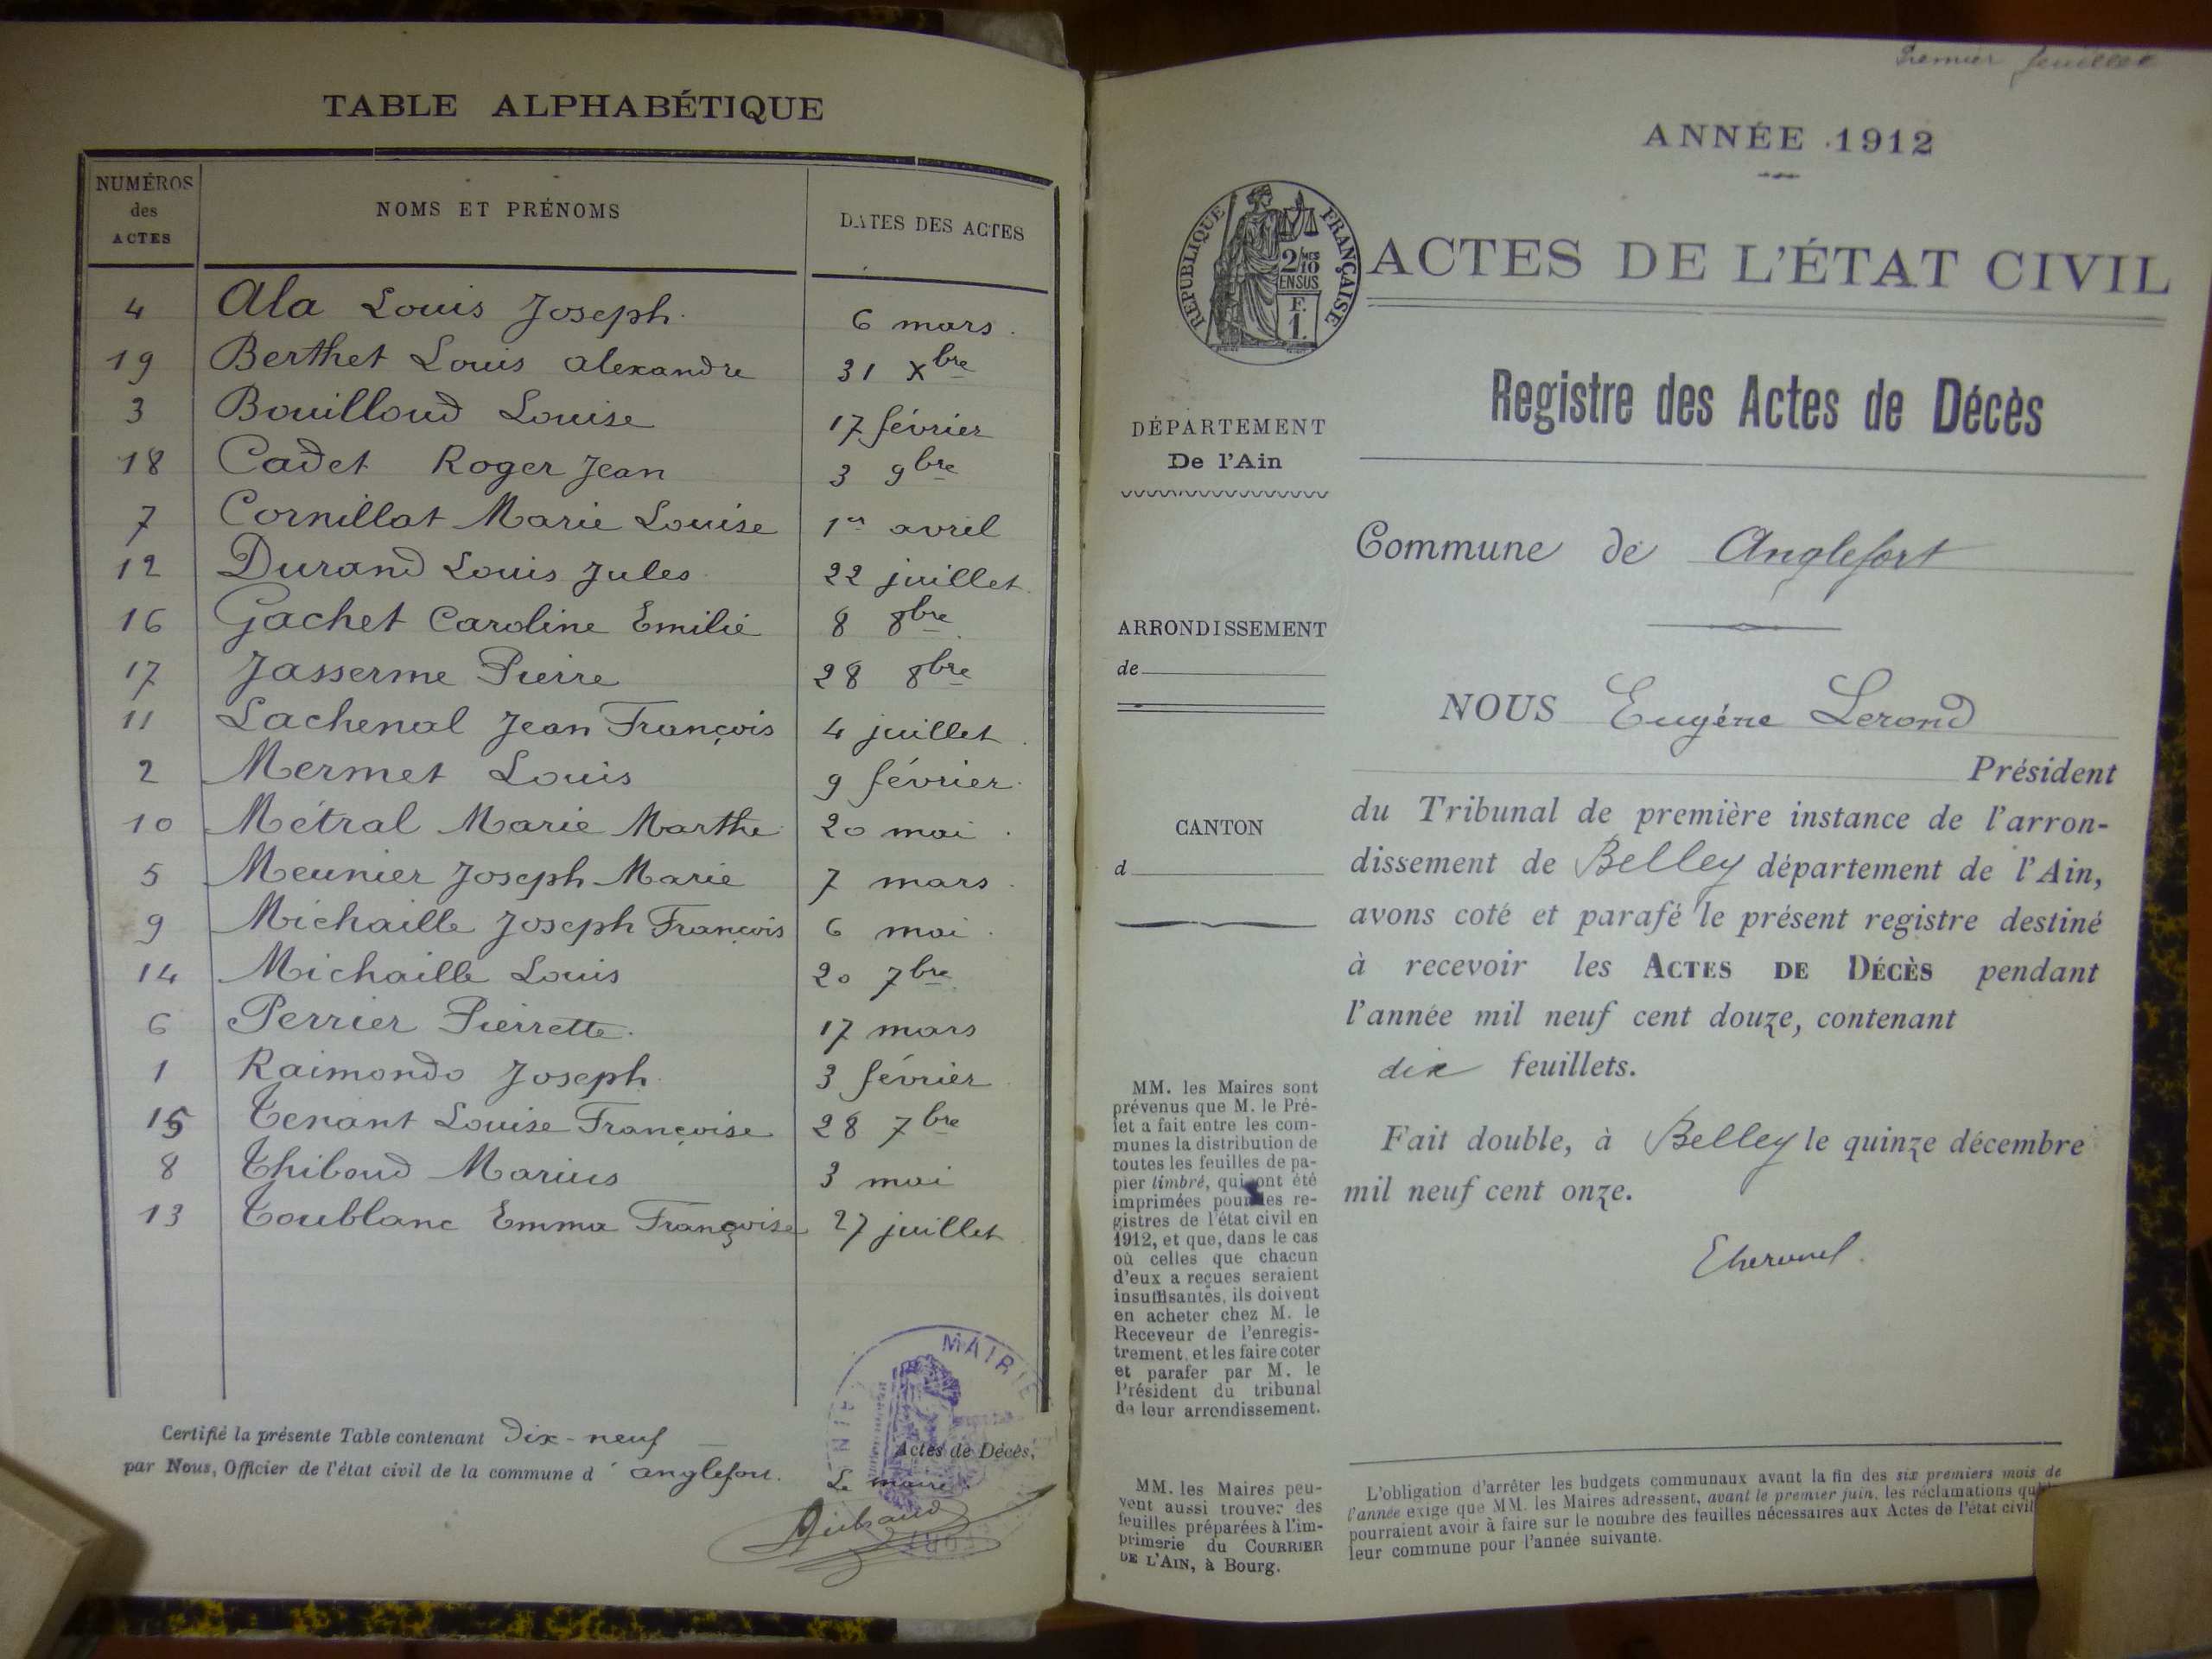 TABLE ALPHABÉTIQUE
NUMÉROS des ACTES NOMS ET PRÉNOMS DATES DES ACTES
4 Ala Louis Joseph 6 mars
19 Berthet Louis Alexandre 31 Xbre
3 Bouilloud Louise 17 février
18 Cadet Roger Jean 3 9bre
7 Cornillat Marie Louise 1er avril
12 Durand Louis Jules 22 juillet
16 Gachet Caroline Emilie 8 8bre
17 Jasserme Pierre 28 8bre
11 Lachenal Jean François 4 juillet
2 Mermet Louis 9 février
10 Métral Marie Marthe 20 mai
5 Meunier Joseph Marie 7 mars
9 Michaille Joseph François 6 mai
14 Michaille Louis 20 7bre
6 Perrier Pierrette 17 mars
1 Raimondo Joseph 3 février
15 Tenant Louise Françoise 28 7bre
8 Thiboud Marius 3 mai
13 Toublanc Emma Françoise 27 juillet
Certifié la présente Table contenant dix-neuf Actes de Décès,
par Nous, Officier de l'état civil de la commune d'anglefort.
Le maire
MAIRIE
Premier feuillet
ANNÉE 1912
RÉPUBLIQUE FRANÇAISE
2/10MES
EN SUS
F.
1.
ACTES DE L'ÉTAT CIVIL
Registre des Actes de Décès
DÉPARTEMENT
De l'Ain
Commune de Anglefort
ARRONDISSEMENT
de
NOUS Eugène Lerond
Président
du Tribunal de première instance de l'arron-
dissement de Belley département de l'Ain,
avons coté et parafé le présent registre destiné
à recevoir les ACTES DE DÉCÈS pendant
l'année mil neuf cent douze, contenant
dix feuillets.
Fait double, à Belley le quinze décembre
mil neuf cent onze.
CANTON
d
MM. les Maires sont
prévenus que M. le Pré-
fet a fait entre les com-
munes la distribution de
toutes les feuilles de pa-
pier timbré, qui ont été
imprimées pour les re-
gistres de l'état civil en
1912, et que, dans le cas
où celles que chacun
d'eux a reçues seraient
insuffisantes, ils doivent
en acheter chez M. le
Receveur de l'enregis-
trement, et les faire coter
et parafer par M. le
Président du tribunal
de leur arrondissement.
MM. les Maires peu-
vent aussi trouver des
feuilles préparées à l'im-
primerie du COURRIER
DE L'AIN, à Bourg.
L'obligation d'arrêter les budgets communaux avant la fin des six premiers mois de
l'année exige que MM. les Maires adressent, avant le premier juin, les réclamations
pourraient avoir à faire sur le nombre des feuilles nécessaires aux Actes de l'état civil
leur commune pour l'année suivante.